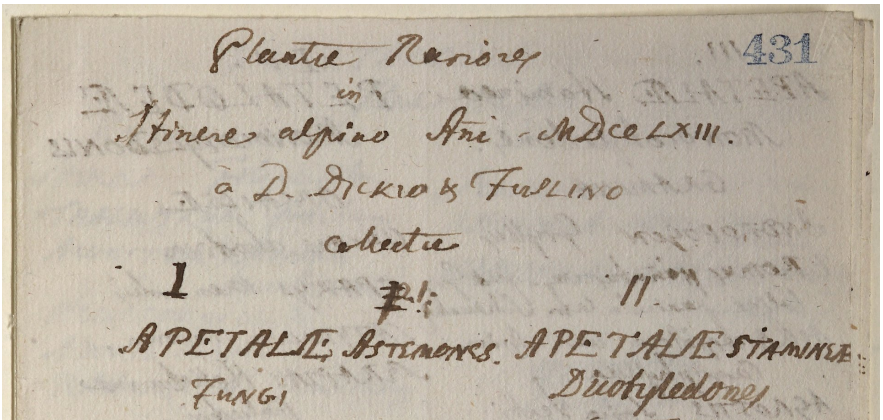 Plantæ Rariores 431
in
Itinere alpino Ani MDCCLXIII.
à D. Dickio & Fueslino
collectæ
I II
APETALÆ, ASTEMONES. APETALÆ STAMINEÆ
FUNGI Dicotyledones